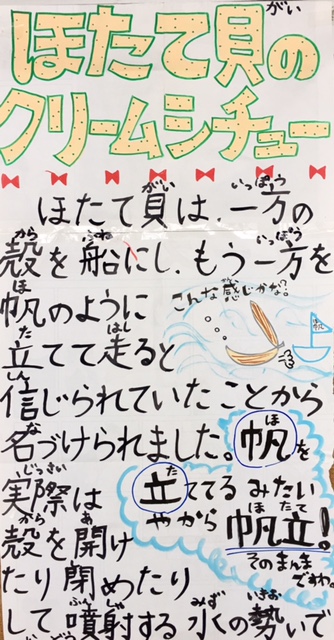 ほたて貝の
がい
クリームシチュー
がい いっぽう
ほたて貝は、一方の
から ふね いっぽう
殻を船にし、もう一方を
ほ
帆のように
こんな感じかな?
帆
た はし
立てて走ると
しん
信じられていたことから
な
名づけられました。
ほ
帆を
た
立ててる みたい
やから
ほ たて
帆立!
そのまんま
ですわ。
じっさい
実際は
から あ
殻を開け
たり閉めたり
ふんしゃ みず いきお
して噴射する水の勢いで